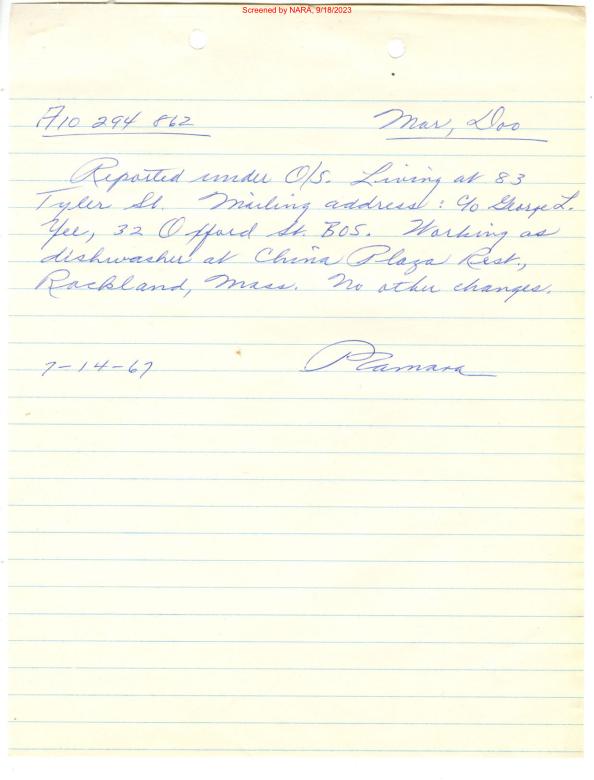 Screened by NARA, 9/18/2023
A10 294 862 Mar, Doo
Reported under O/S. Living at 83
Tyler St. Mailing address: c/o George L.
Yee, 32 Offord St. BOS. Working as
dishwasher at China Plaza Rest.,
Rockland, Mass. No other changes.
7-14-67